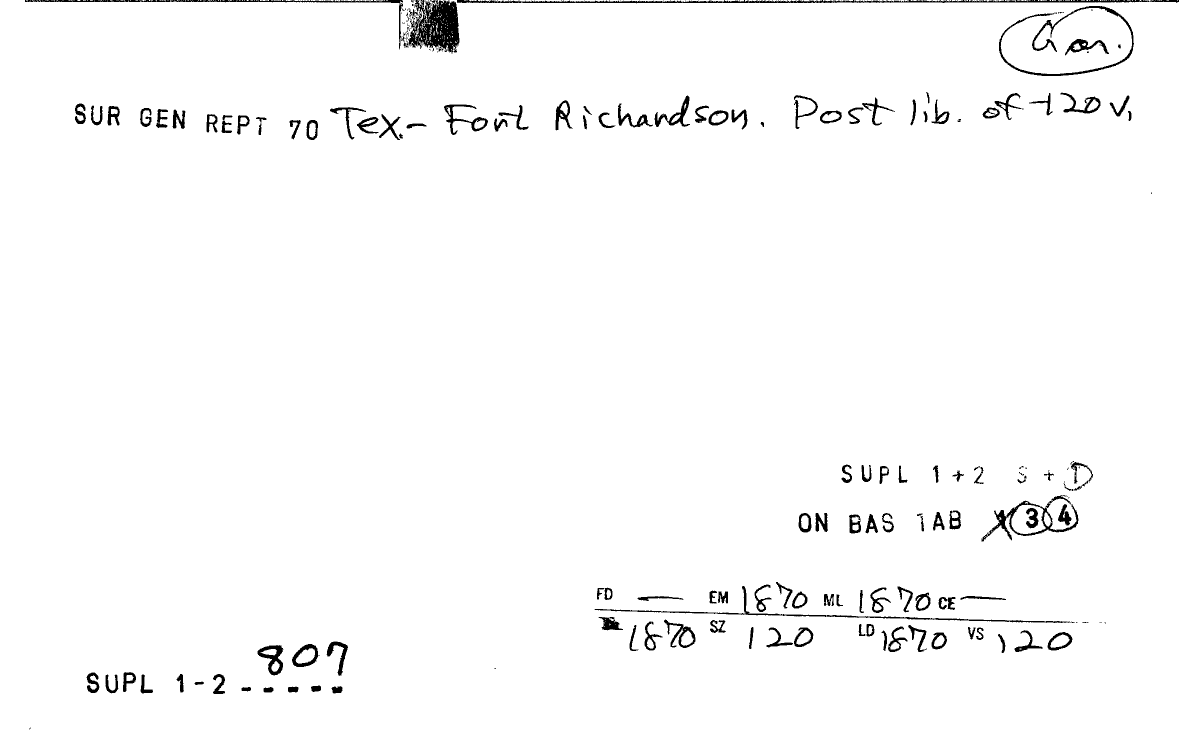 Gen.
SUR GEN REPT 70 Tex.- Fort Richardson. Post lib. of 120 v.
SUPL 1+2 S+D
ON BAS TAB 3 4
FD — EM 1870 ML 1870 CE —
1870 SZ 120 LD 1870 VS 120
807
SUPL 1-2 -----